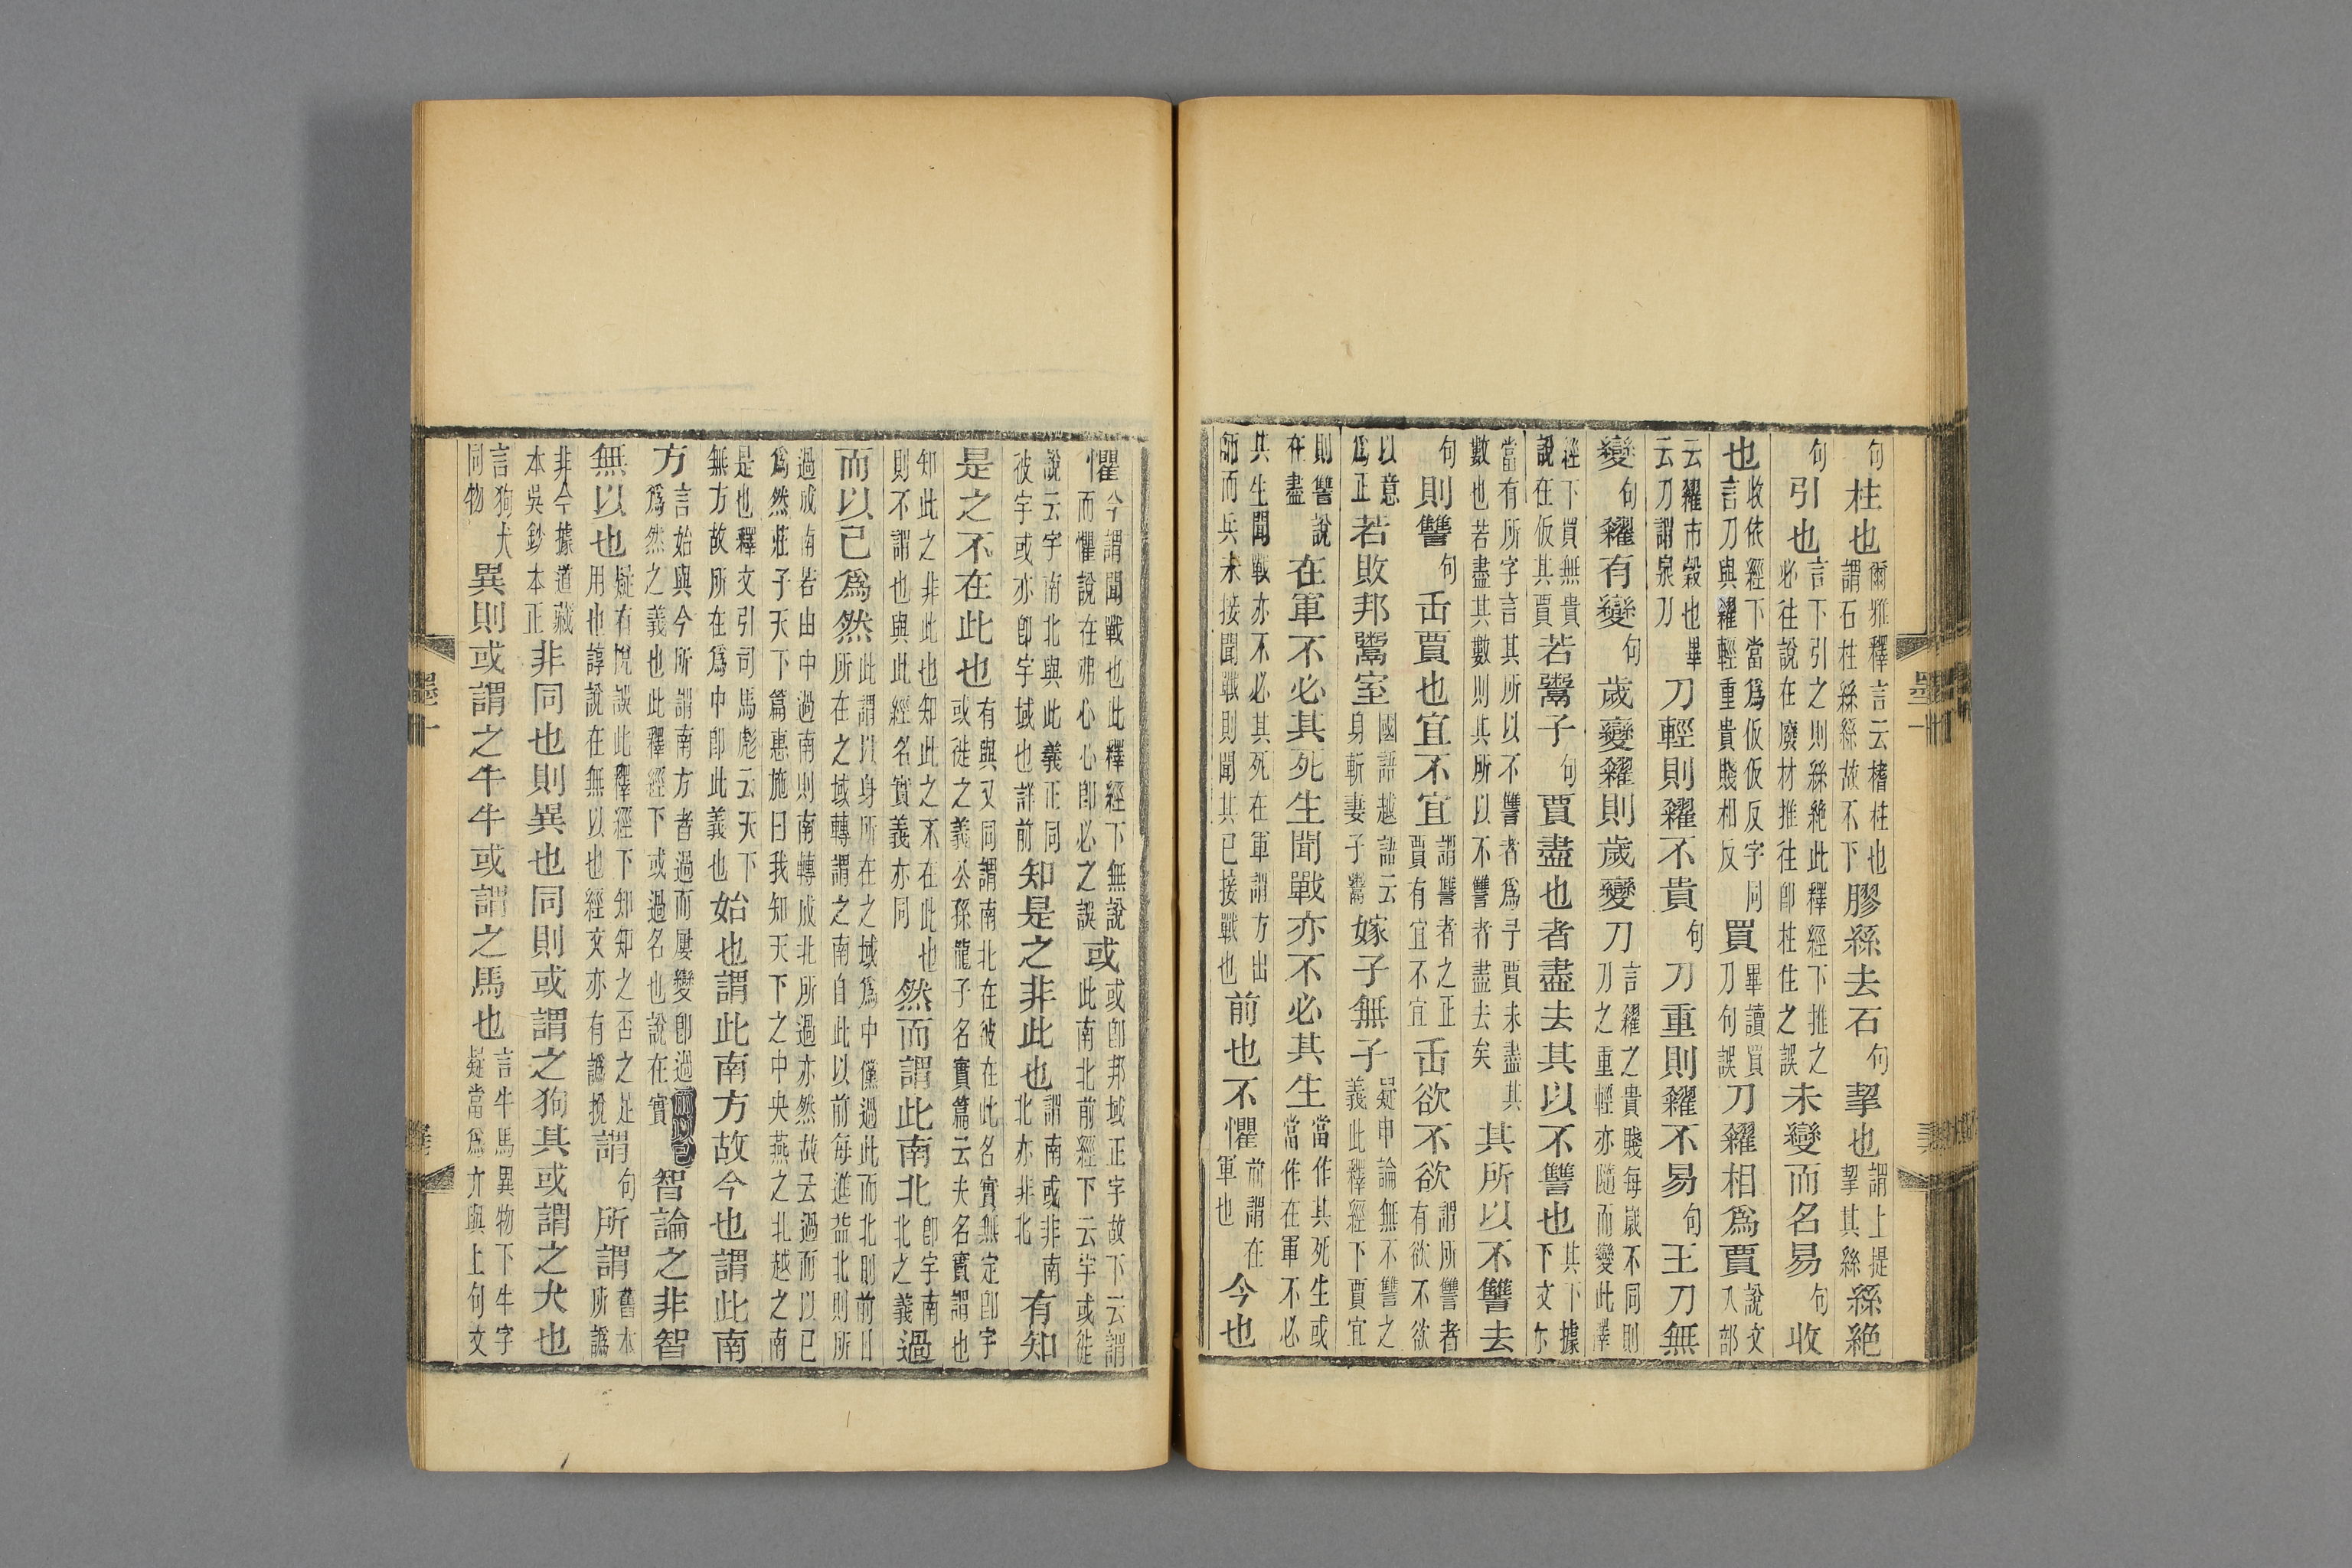 句柱也爾雅釋言云榰柱也謂石柱絲絲故不下膠絲去石句挈也謂上提挈其絲絲絕
句引也言下引之則絲絕此釋經下推之必往說在廢材推往即柱住之誤未變而名易句收
也收依經下當爲仮仮反字同言刀與糴輕重貴賤相反買畢讀買刀句誤刀糴相爲賈說文入部
云糴市穀也畢云刀謂泉刀刀輕則糴不貴句刀重則糴不易句王刀無
變句糴有變句歲變糴則歲變刀言糴之貴賤每歲不同則刀之重輕亦隨而變此釋
經下買無貴說在仮其賈若鬻子句賈盡也者盡去其以不讐也其下據下文乍
當有所字言其所以不讐者爲寽賈未盡其數也若盡其數則其所以不讐者盡去矣其所以不讐去
句則讐句𠙺賈也宜不宜謂讐者之正賈有宜不宜𠙺欲不欲謂所讐者有欲不欲
以意爲正若敗邦鬻室國語越語云身斬妻子鬻嫁子無子疑申論無不讐之義此釋經下賈宜
則讐說在盡在軍不必其死生聞戰亦不必其生當作其死生或當作在軍不必
其生聞戰亦不必其死在軍謂方出師而兵未接聞戰則聞其已接戰也前也不懼前謂在軍也今也
懼今謂聞戰也此釋經下無說而懼說在弗心心即必之誤或或即邦域正字故下云謂此南北前經下云宇或徙
說云宇南北與此義正同彼宇或亦即宇域也詳前知是之非此也謂南或非南北亦非北有知
是之不在此也有與又同謂南北在彼在此名實無定即宇或徙之義公孫龍子名實篇云夫名實謂也
知此之非此也知此之不在此也則不謂也與此經名實義亦同然而謂此南北即宇南北之義過
而以已爲然此謂以身所在之域爲中僅過此而北則前日所在之域轉謂之南自此以前每進益北則所
過或南若由中過南則南轉成北所過亦然故云過而以已爲然莊子天下篇惠施曰我知天下之中央燕之北越之南
是也釋文引司馬彪云天下無方故所在爲中即此義也始也謂此南方故今也謂此南
方言始與今所謂南方者過而屢變即過而以已爲然之義也此釋經下或過名也說在實智論之非智
無以也疑有挩誤此釋經下知知之否之足用也諄說在無以也經文亦有譌挩謂句所謂舊本所譌
非今據道藏本吳鈔本正非同也則異也同則或謂之狗其或謂之犬也
言狗犬同物異則或謂之牛牛或謂之馬也言牛馬異物下牛字疑當爲亣與上句文
墨十